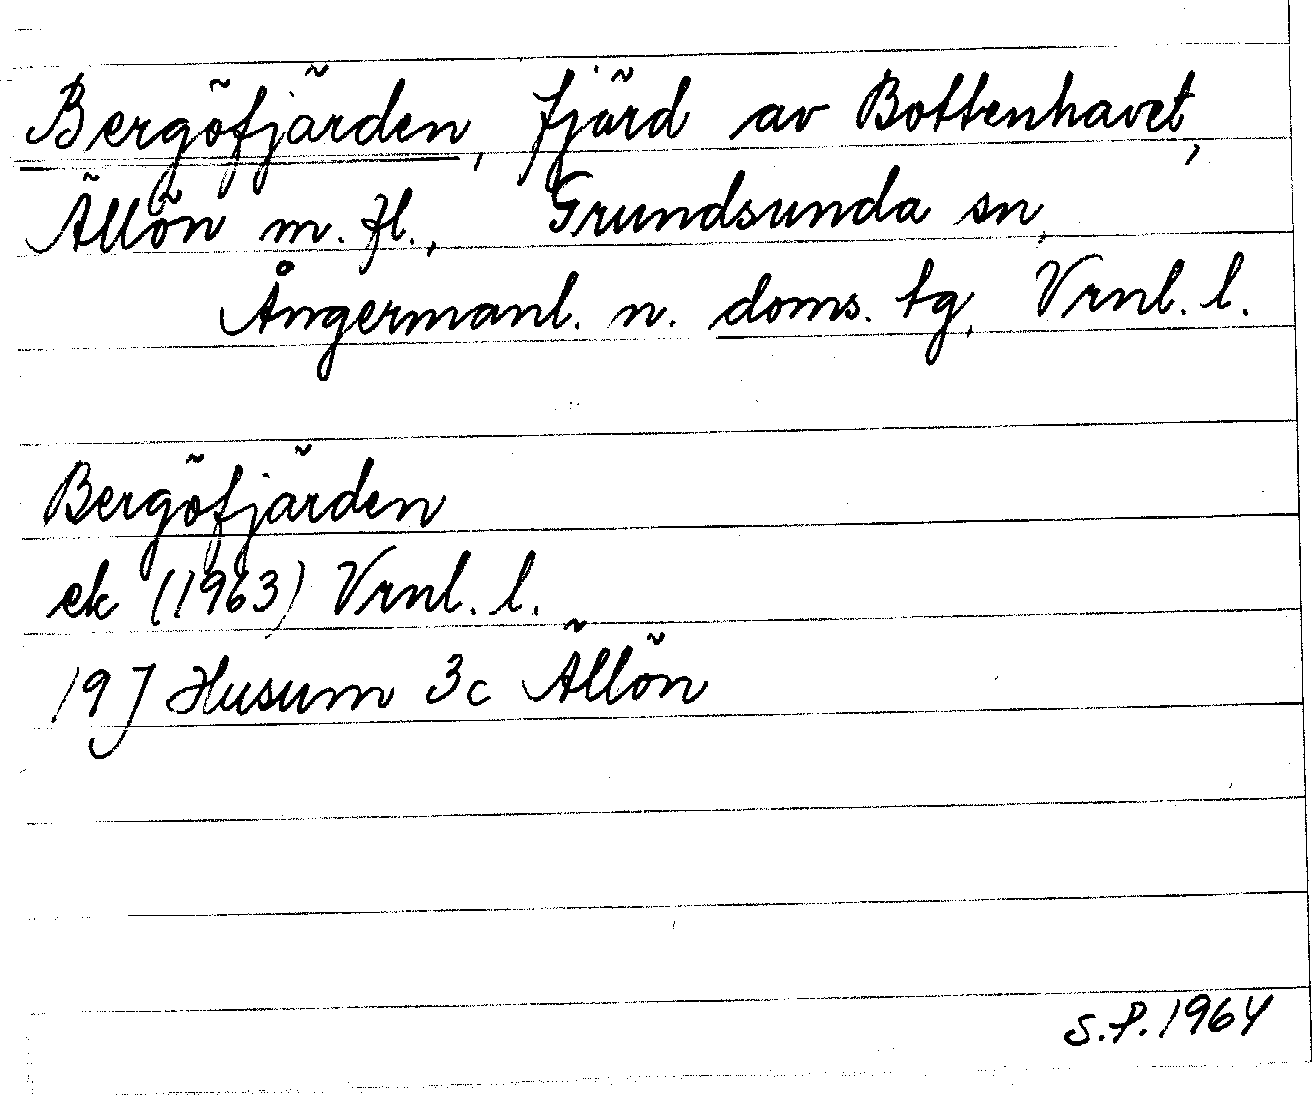 Bergöfjärden, fjärd av Bottenhavet,
Ällön m. fl., Grundsunda sn,
Ångermanl. n. doms. tg, Vrnl. l.
Bergöfjärden
ek (1963) Vrnl. l.
19J Husum 3c Ällön
S.P. 1964